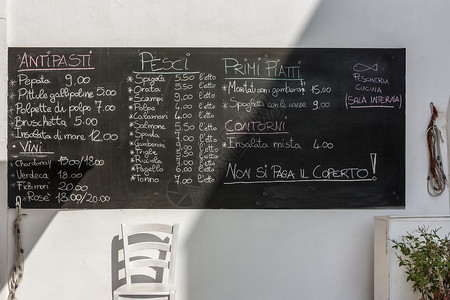 ANTIPASTI
* Pepata 9,00
* Pittule gallipoline 5.00
* Polpette di polpo 7.00
* Bruschetta 5.00
* Insalata di mare 12,00
VINI
* Chardonnay 15.00/18.00
* Verdeca 18.00
* Fichimori 20.00
* Rosè 18.00/20.00
PESCI
* Spigola 5.50 l'etto
* Orata 5.50 l'etto
* Scampi 9.00 l'etto
* Polpo l'etto
* Calamari 4.00 l'etto
* Salmone l'etto
* Spada l'etto
* Gamberoni l'etto
* Triglie l'etto
* Ricciola l'etto
* Pagello 6.00 l'etto
* Tonno 7.00 l'etto
PRIMI PIATTI
* Maritati con gambaroni 15.00
* Spaghetti con le cozze 9,00
CONTORNI
* Insalata mista 4.00
NON SI PAGA IL COPERTO!
PESCHERIA
CUCINA
(SALA INTERNA)